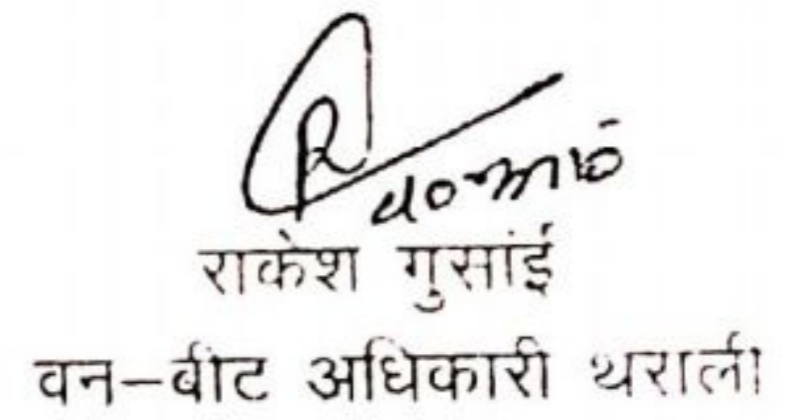 राकेश गुसांई
वन-बीट अधिकारी थराली